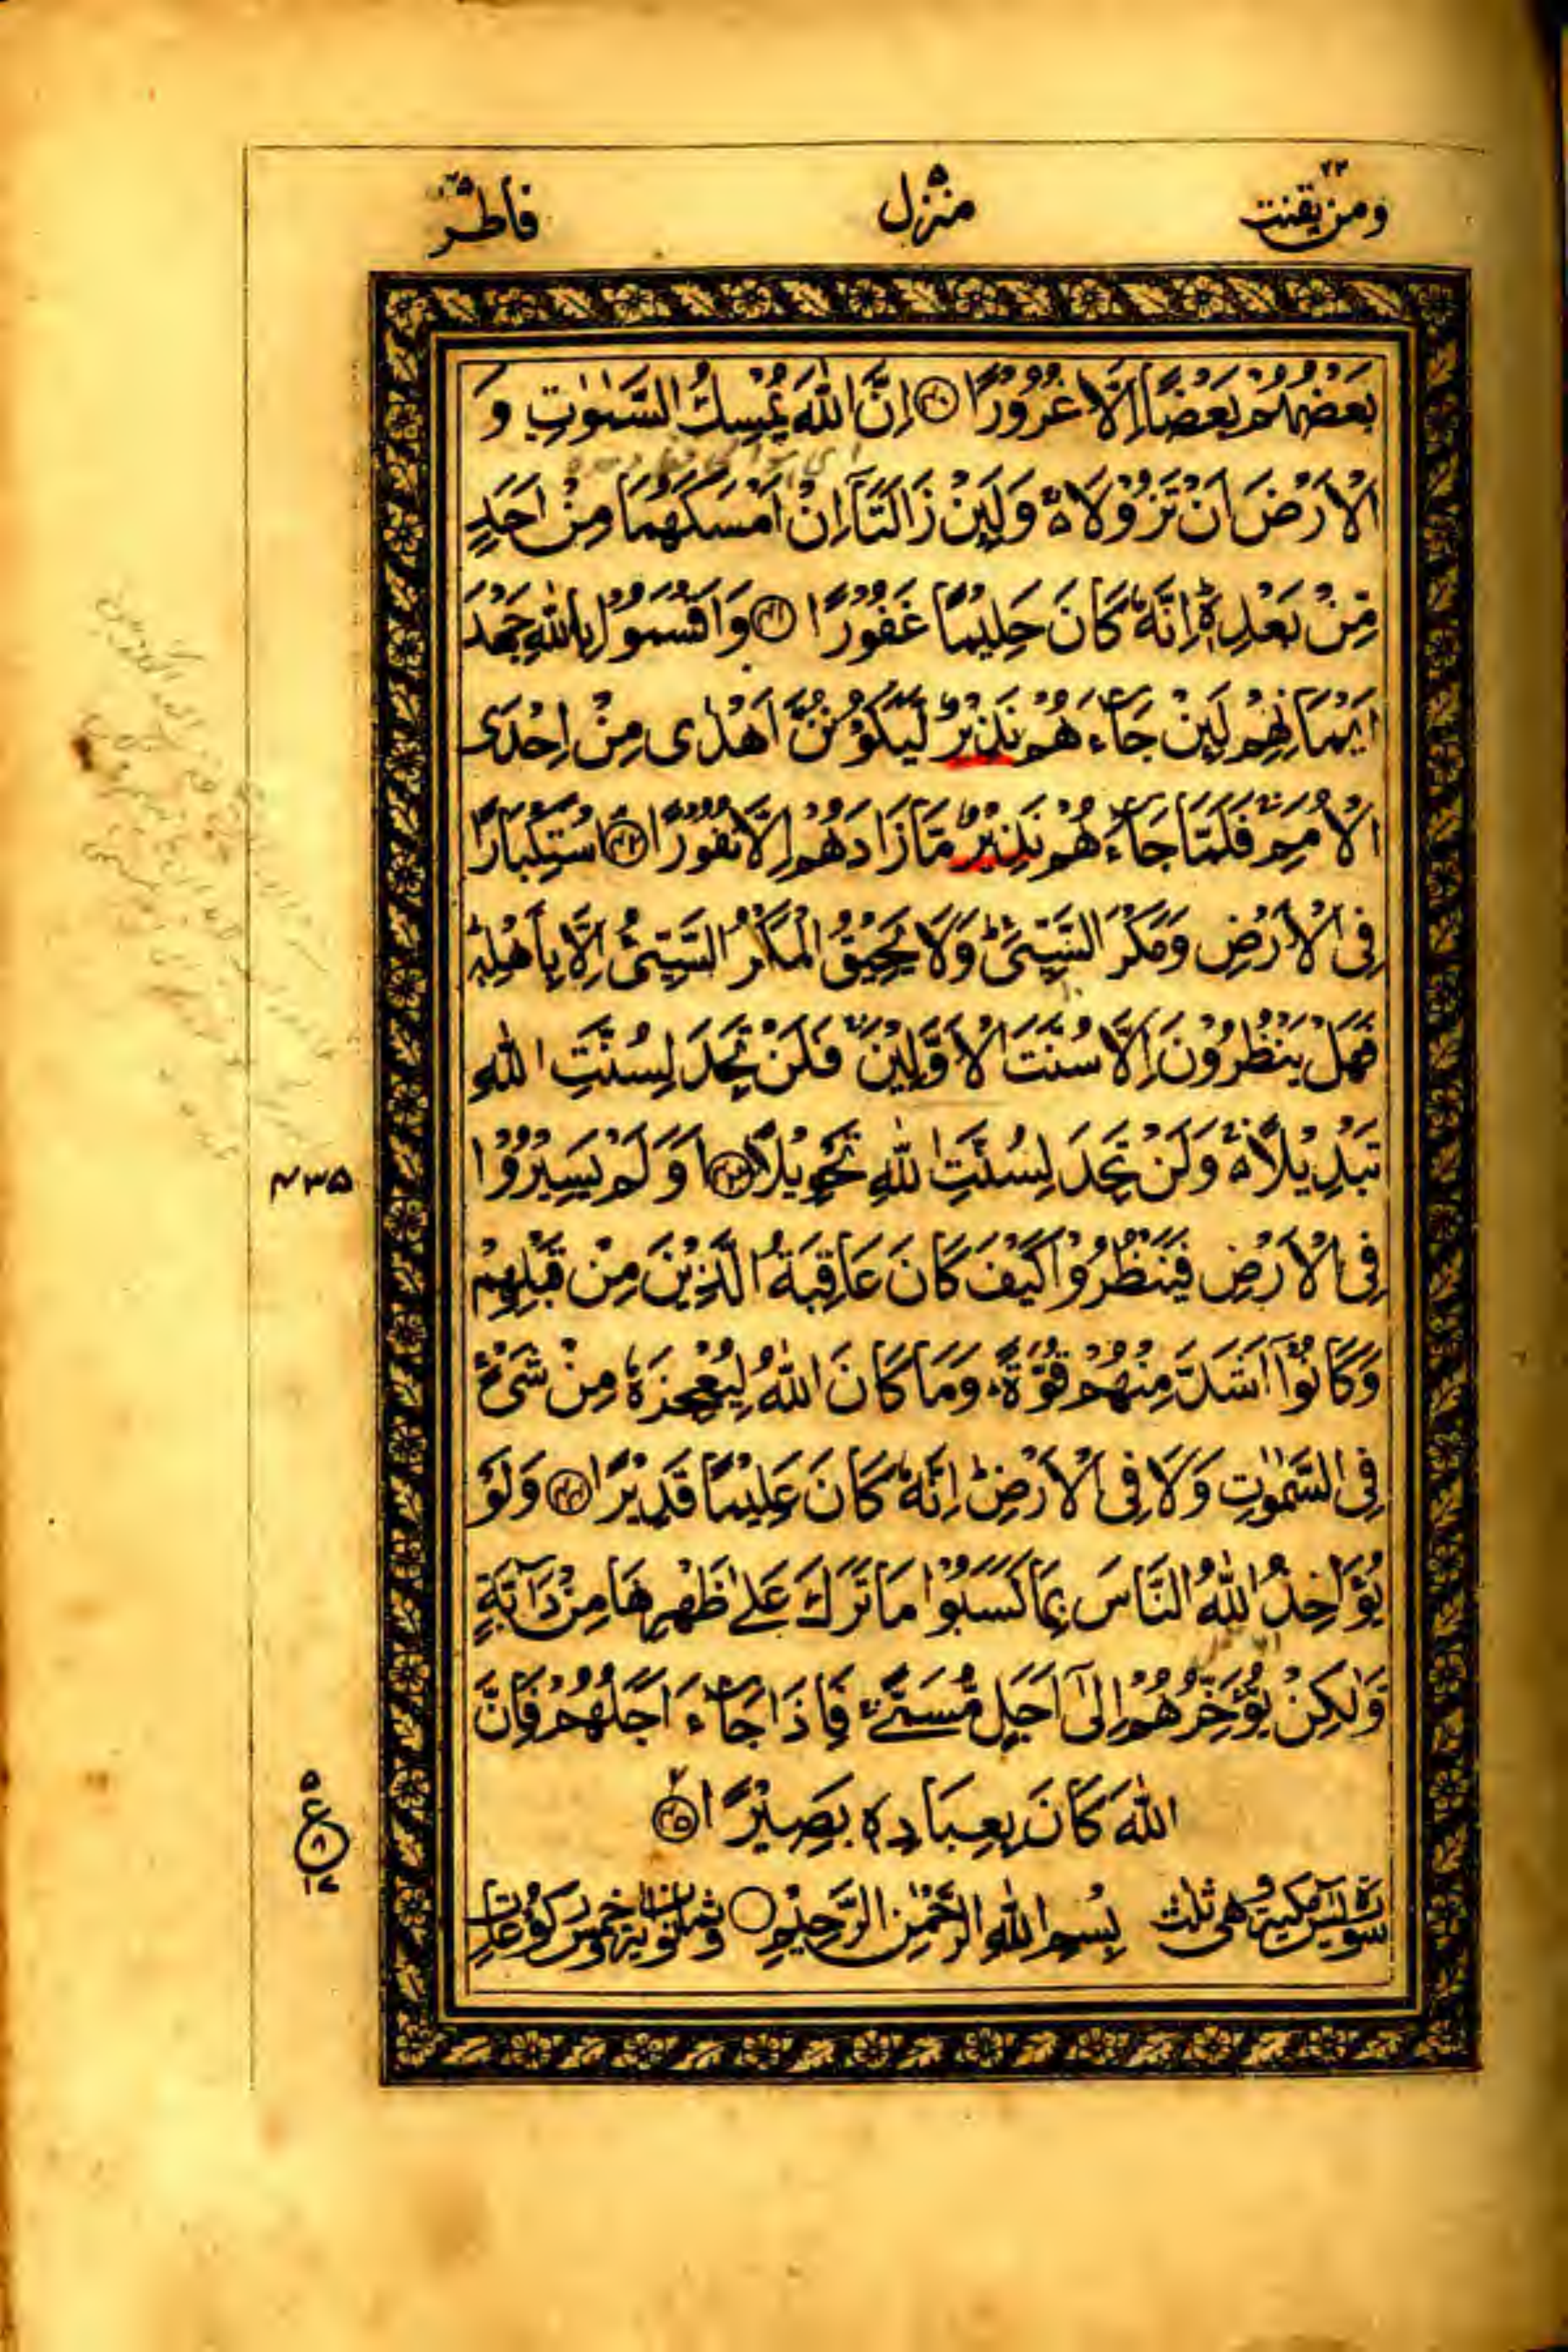 ومن يقنت ٢٢ منزل ٥ فاطر ٣٥
بَعْضُهُمْ بَعْضًا اِلَّا غُرُوْرًا ﴿٤٠﴾ اِنَّ اللّٰهَ يُمْسِكُ السَّمٰوٰتِ وَ
الْاَرْضَ اَنْ تَزُوْلَا ۚ وَلَئِنْ زَالَتَاۤ اِنْ اَمْسَكَهُمَا مِنْ اَحَدٍ
مِّنْ بَعْدِهٖ ؕ اِنَّهٗ كَانَ حَلِيْمًا غَفُوْرًا ﴿٤١﴾ وَاَقْسَمُوْا بِاللّٰهِ جَهْدَ
اَيْمَانِهِمْ لَئِنْ جَآءَهُمْ نَذِيْرٌ لَّيَكُوْنُنَّ اَهْدٰى مِنْ اِحْدَى
الْاُمَمِ ۚ فَلَمَّا جَآءَهُمْ نَذِيْرٌ مَّا زَادَهُمْ اِلَّا نُفُوْرًا ﴿٤٢﴾ اسْتِكْبَارًا
فِى الْاَرْضِ وَمَكْرَ السَّيِّئِ ؕ وَلَا يَحِيْقُ الْمَكْرُ السَّيِّئُ اِلَّا بِاَهْلِهٖ ؕ
فَهَلْ يَنْظُرُوْنَ اِلَّا سُنَّتَ الْاَوَّلِيْنَ ۚ فَلَنْ تَجِدَ لِسُنَّتِ اللّٰهِ
تَبْدِيْلًا ۚ وَلَنْ تَجِدَ لِسُنَّتِ اللّٰهِ تَحْوِيْلًا ﴿٤٣﴾ اَوَلَمْ يَسِيْرُوْا
٤٣٥
فِى الْاَرْضِ فَيَنْظُرُوْا كَيْفَ كَانَ عَاقِبَةُ الَّذِيْنَ مِنْ قَبْلِهِمْ
وَكَانُوْۤا اَشَدَّ مِنْهُمْ قُوَّةً ؕ وَمَا كَانَ اللّٰهُ لِيُعْجِزَهٗ مِنْ شَىْءٍ
فِى السَّمٰوٰتِ وَلَا فِى الْاَرْضِ ؕ اِنَّهٗ كَانَ عَلِيْمًا قَدِيْرًا ﴿٤٤﴾ وَلَوْ
يُؤَاخِذُ اللّٰهُ النَّاسَ بِمَا كَسَبُوْا مَا تَرَكَ عَلٰى ظَهْرِهَا مِنْ دَآبَّةٍ
وَّلٰكِنْ يُّؤَخِّرُهُمْ اِلٰۤى اَجَلٍ مُّسَمًّى ۚ فَاِذَا جَآءَ اَجَلُهُمْ فَاِنَّ
اللّٰهَ كَانَ بِعِبَادِهٖ بَصِيْرًا ﴿٤٥﴾
٥ ع ٨ ١٧
سورة يٰسٓ مكية وهى ثلث بِسْمِ اللّٰهِ الرَّحْمٰنِ الرَّحِيْمِ وثمانون اية وخمس ركوعات